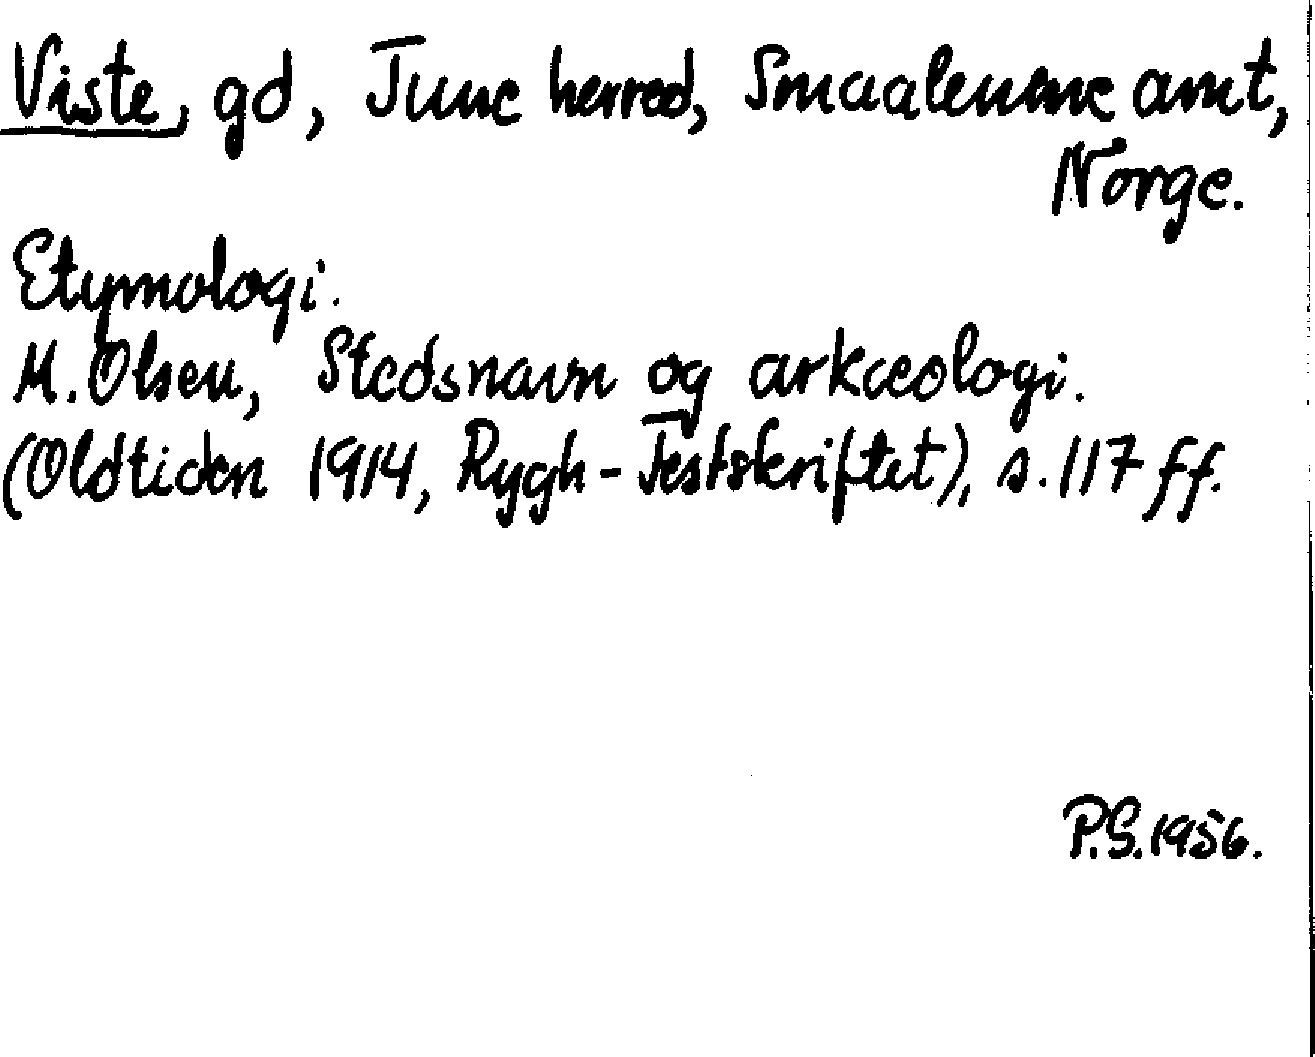 Viste, gd, Tune herred, Smaalenene amt,
Norge.
Etymologi.
M. Olsen, Stedsnavn og arkæologi.
(Oldtiden 1914, Rygh-Festskriftet), s. 117 ff.
P.S. 1956.